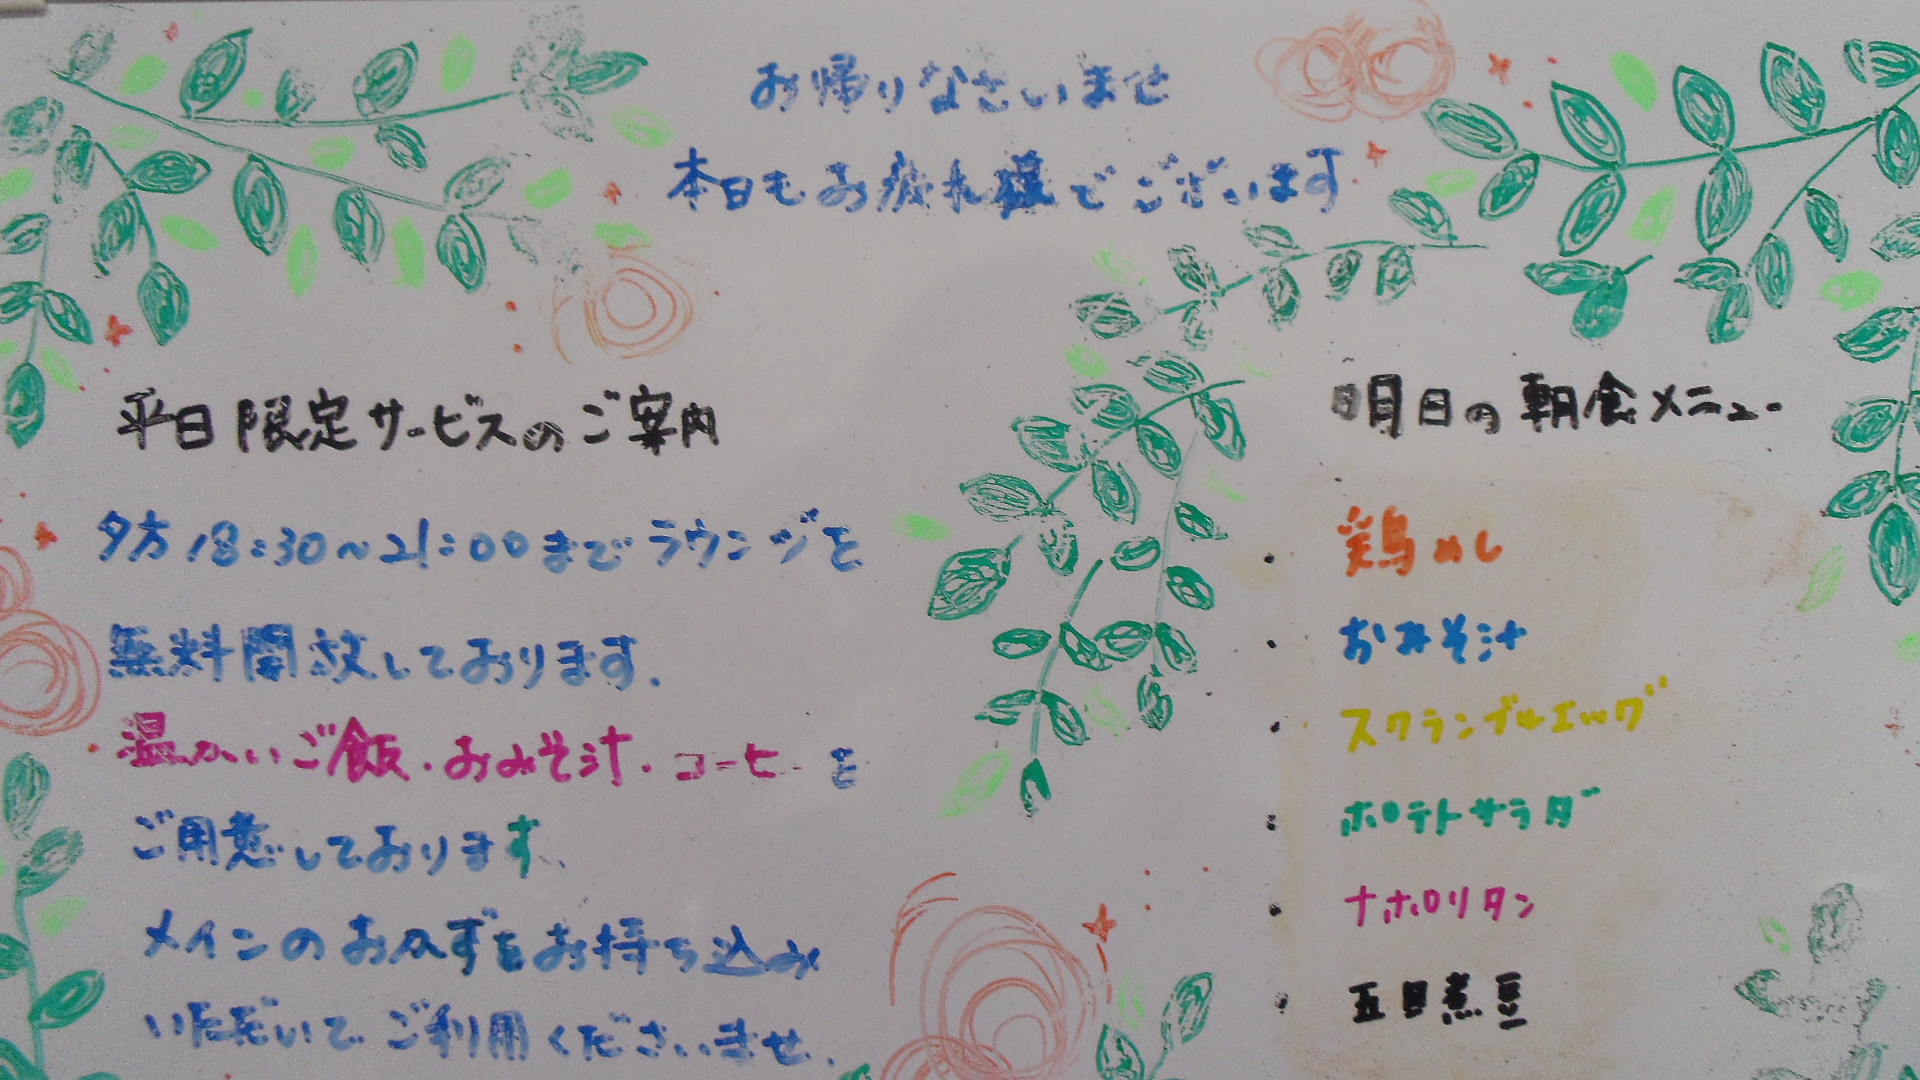 お帰りなさいませ
本日もお疲れ様でございます
平日限定サービスのご案内
夕方18:30～21:00までラウンジを
無料開放しております.
温かいご飯・おみそ汁・コーヒーを
ご用意しております、
メインのおかずをお持ち込み
いただいてご利用くださいませ.
明日の朝食メニュー
・鶏めし
・おみそ汁
・スクランブルエッグ
・ポテトサラダ
・ナポリタン
・五目煮豆